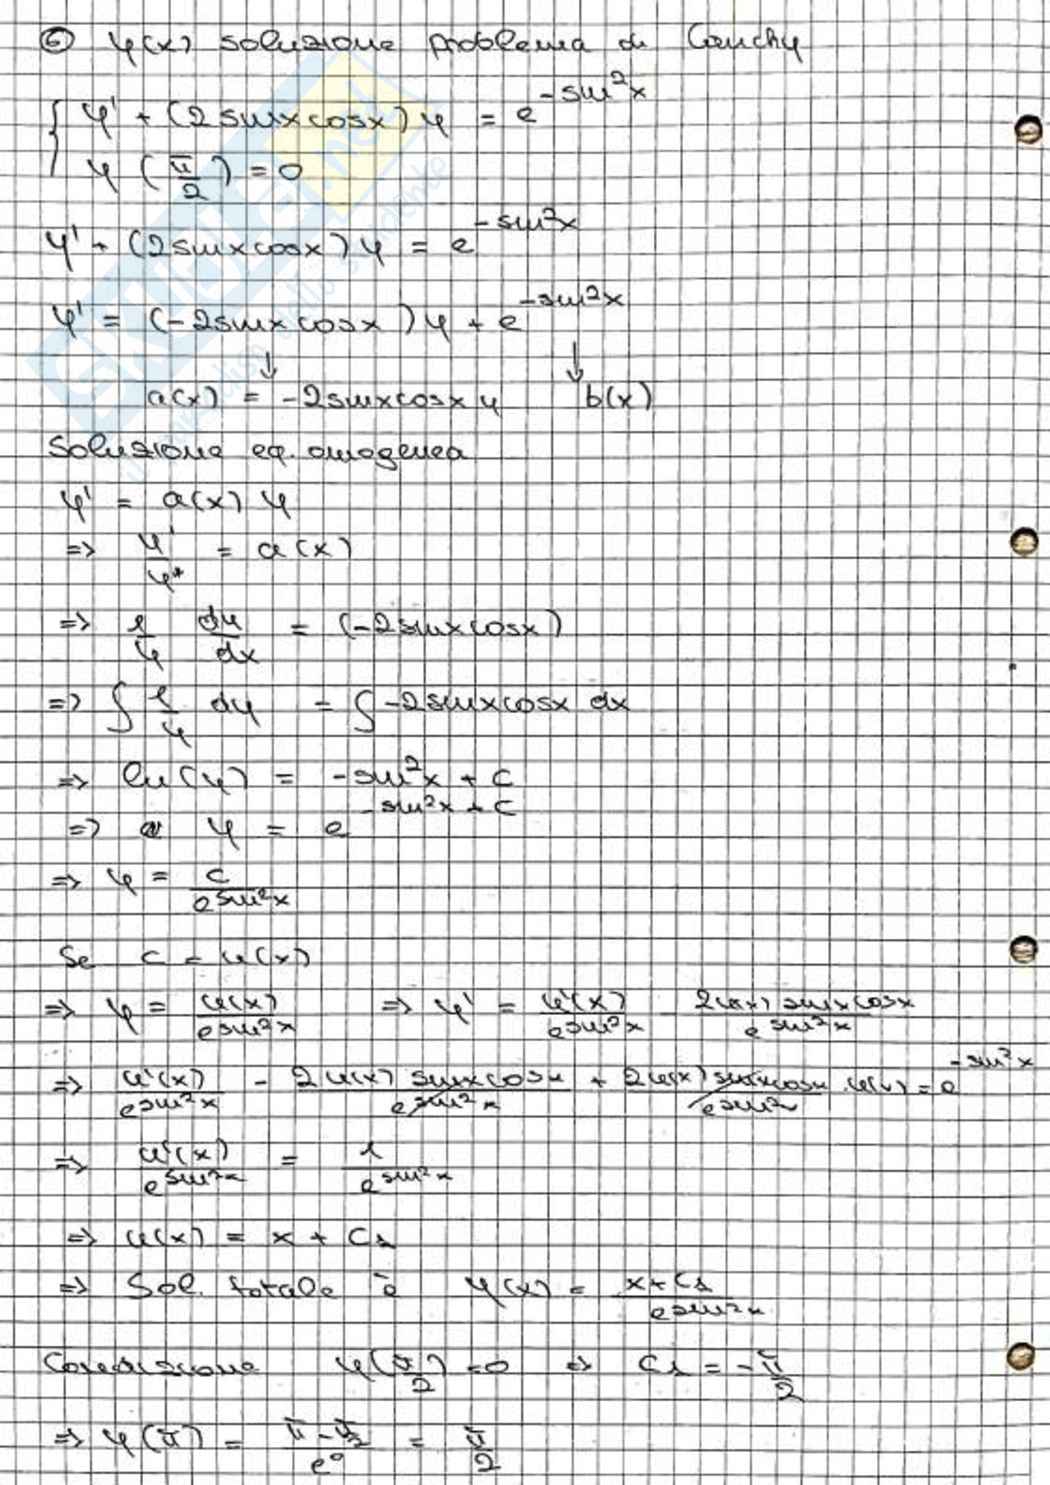 ⑥ y(x) soluzione problema di Cauchy
{ y' + (2sinxcosx)y = e^{-sin²x}
y(π/2) = 0
y' + (2sinxcosx)y = e^{-sin²x}
y' = (-2sinxcosx)y + e^{-sin²x}
↓ ↓
a(x) = -2sinxcosx y b(x)
Soluzione eq. omogenea
y' = a(x) y
=> y'/y = a(x)
=> 1/y dy/dx = (-2sinxcosx)
=> ∫ 1/y dy = ∫ -2sinxcosx dx
=> ln(y) = -sin²x + C
=> y = e^{-sin²x + C}
=> y = C/e^{sin²x}
Se C = u(x)
=> y = u(x)/e^{sin²x} => y' = u'(x)/e^{sin²x} - 2u(x) sinxcosx/e^{sin²x}
=> u'(x)/e^{sin²x} - 2u(x) sinxcosx/e^{sin²x} + 2u(x) sinxcosx/e^{sin²} · u(x) = e^{-sin²x}
=> u'(x)/e^{sin²x} = 1/e^{sin²x}
=> u(x) = x + C₁
=> Sol. totale è y(x) = x+C₁/e^{sin²x}
Condizione y(π/2) = 0 => C₁ = -π/2
=> y(π) = π - π/2/e⁰ = π/2